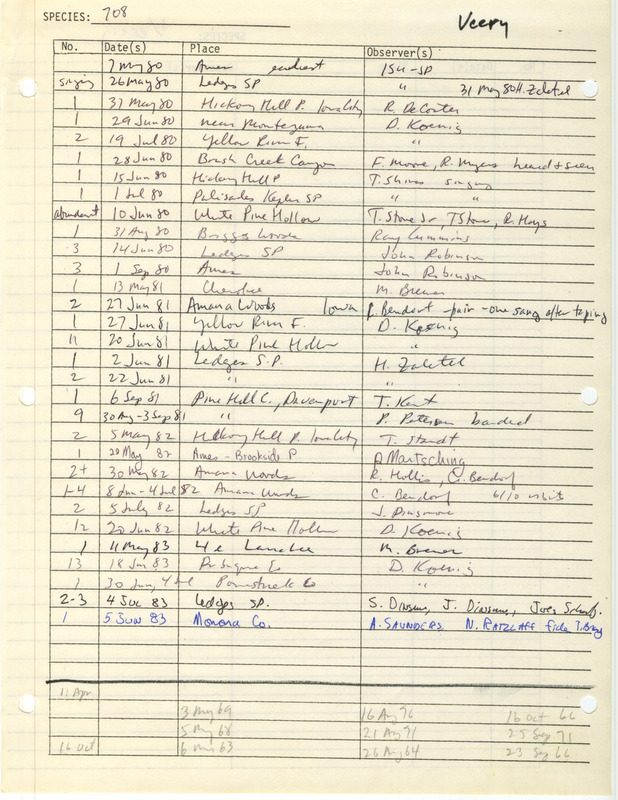 SPECIES: 708
Veery
No. Date(s) Place Observer(s)
7 May 80 Ames earliest ISU-SP
singing 26 May 80 Ledges SP " 31 May 80 H. Zaletel
1 31 May 80 Hickory Hill P. Iowa City R. DeCoster
1 29 Jun 80 near Montezuma D. Koenig
2 19 Jul 80 Yellow River F. "
1 28 Jun 80 Brush Creek Canyon F. Moore, R. Myers heard & seen
1 15 Jun 80 Hickory Hill P T. Shires singing
1 1 Jul 80 Palisades Kepler SP " "
abundant 10 Jun 80 White Pine Hollow T. Stone Sr, T Stone, R. Hays
1 31 Aug 80 Briggs Woods Ray Cummins
3 14 Jun 80 Ledges SP John Robinson
3 1 Sep 80 Ames John Robinson
1 13 May 81 Cherokee M. Brewer
2 27 Jun 81 Amana Woods Iowa C. Bendorf - pair - one sang after taping
1 27 Jun 81 Yellow River F. D. Koenig
11 20 Jun 81 White Pine Hollow "
1 2 Jun 81 Ledges S.P. H. Zaletel
2 22 Jun 81 " "
1 6 Sep 81 Pine Hill C., Davenport T. Kent
9 30 Aug-3 Sep 81 " P. Petersen banded
2 5 May 82 Hickory Hill P. Iowa City T. Staudt
1 20 May 82 Ames - Brookside P P Martsching
2+ 30 May 82 Amana Woods R. Hollis, C. Bendorf
1-4 8 Jun - 4 Jul 82 Amana Woods C. Bendorf 6/10 visits
2 5 July 82 Ledges SP J. Dinsmore
12 20 Jun 82 White Pine Hollow D. Koenig
1 11 May 83 4 e Larrabee M. Brewer
13 18 Jun 83 Dubuque Co D. Koenig
1 30 Jun, 4 Jul Poweshiek Co "
2-3 4 Jul 83 Ledges SP. S. Dinsmore, J. Dinsmore, Joey
1 5 Jun 83 Monona Co. A. SAUNDERS N. RATZLAFF fide T. Bray
11 Apr
3 May 69 16 Aug 76 16 Oct 66
5 May 68 21 Aug 91 25 Sep 71
16 Oct 6 63 26 Aug 64 23 Sep 66